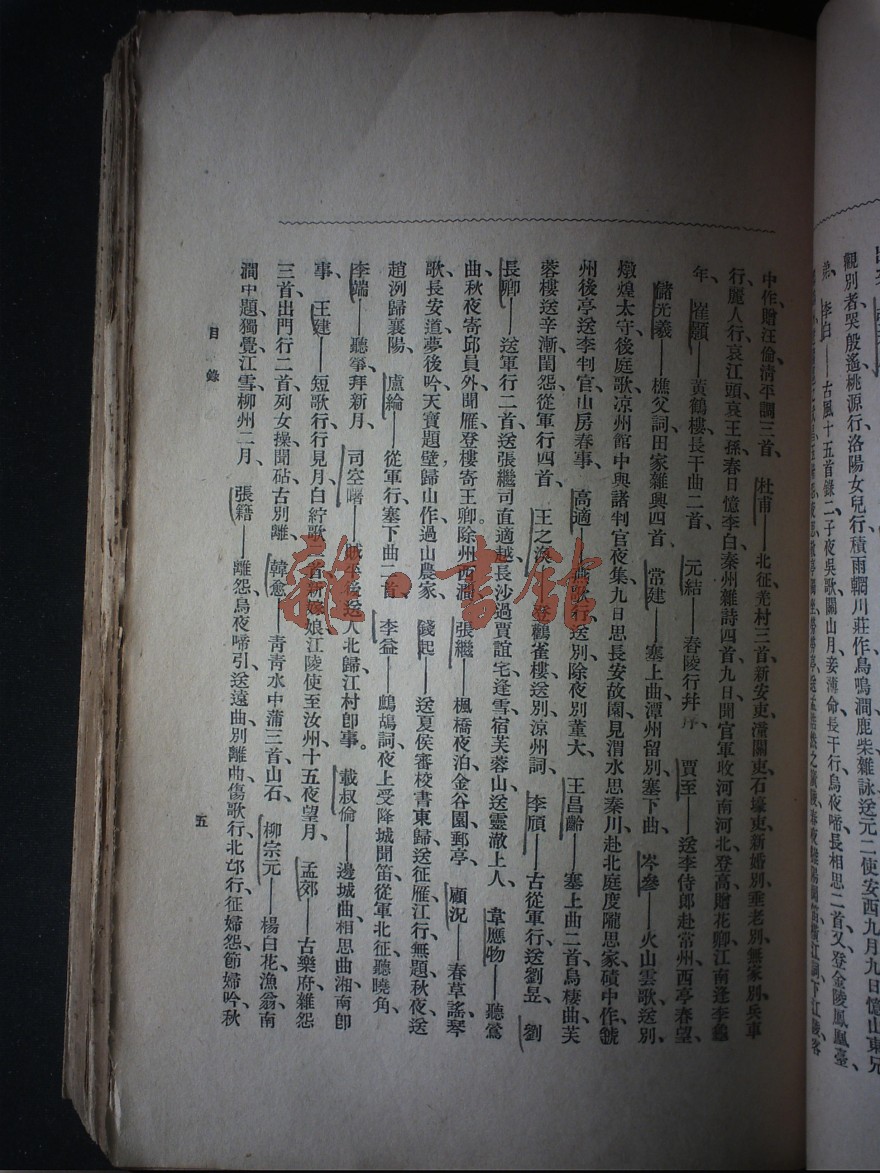 觀別者哭殷遙桃源行洛陽女兒行積雨輞川莊作鳥鳴澗鹿柴雜詠送元二使安西九月九日憶山東兄
李白——古風十五首錄二子夜吳歌關山月妾薄命長干行烏夜啼長相思二首又登金陵鳳凰臺
中作贈汪倫清平調三首、杜甫——北征羌村三首新安吏潼關吏石壕吏新婚別垂老別無家別兵車
行麗人行哀江頭哀王孫春日憶李白秦州雜詩四首九日聞官軍收河南河北登高贈花卿江南逢李龜
年、崔顥——黃鶴樓長干曲二首、元結——舂陵行幷序、賈至——送李侍郎赴常州西亭春望、
儲光羲——樵父詞田家雜興四首、常建——塞上曲潭州留別塞下曲、岑參——火山雲歌送別、
燉煌太守後庭歌涼州館中與諸判官夜集九日思長安故園見渭水思秦川赴北庭度隴思家磧中作虢
州後亭送李判官山房春事、高適——燕歌行送別除夜別董大、王昌齡——塞上曲二首烏棲曲芙
蓉樓送辛漸閨怨從軍行四首、王之渙——登鸛雀樓送別涼州詞、李頎——古從軍行送劉昱、劉
長卿——送軍行二首送張繼司直適越長沙過賈誼宅逢雪宿芙蓉山送靈澈上人、韋應物——聽鶯
曲秋夜寄邱員外聞雁登樓寄王卿除州西澗、張繼——楓橋夜泊金谷園郵亭、顧況——春草謠琴
歌長安道夢後吟天寶題壁歸山作過山農家、錢起——送夏侯審校書東歸送征雁江行無題秋夜送
趙洌歸襄陽、盧綸——從軍行塞下曲二首、李益——鷓鴣詞夜上受降城聞笛從軍北征聽曉角、
李端——聽箏拜新月、司空曙——賊平後送人北歸江村卽事。戴叔倫——邊城曲相思曲湘南卽
事、王建——短歌行行見月白紵歌二首新嫁娘江陵使至汝州十五夜望月、孟郊——古樂府雜怨
三首出門行二首列女操聞砧古別離、韓愈——青青水中蒲三首山石、柳宗元——楊白花漁翁南
澗中題獨覺江雪柳州二月、張籍——離怨烏夜啼引送遠曲別離曲傷歌行北邙行征婦怨節婦吟秋
目錄
五
雜·書館